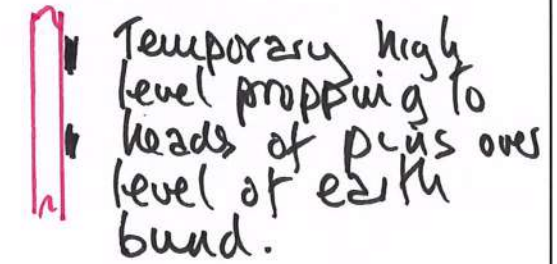 Temporary high
level propping to
heads of pins over
level of earth
bund.